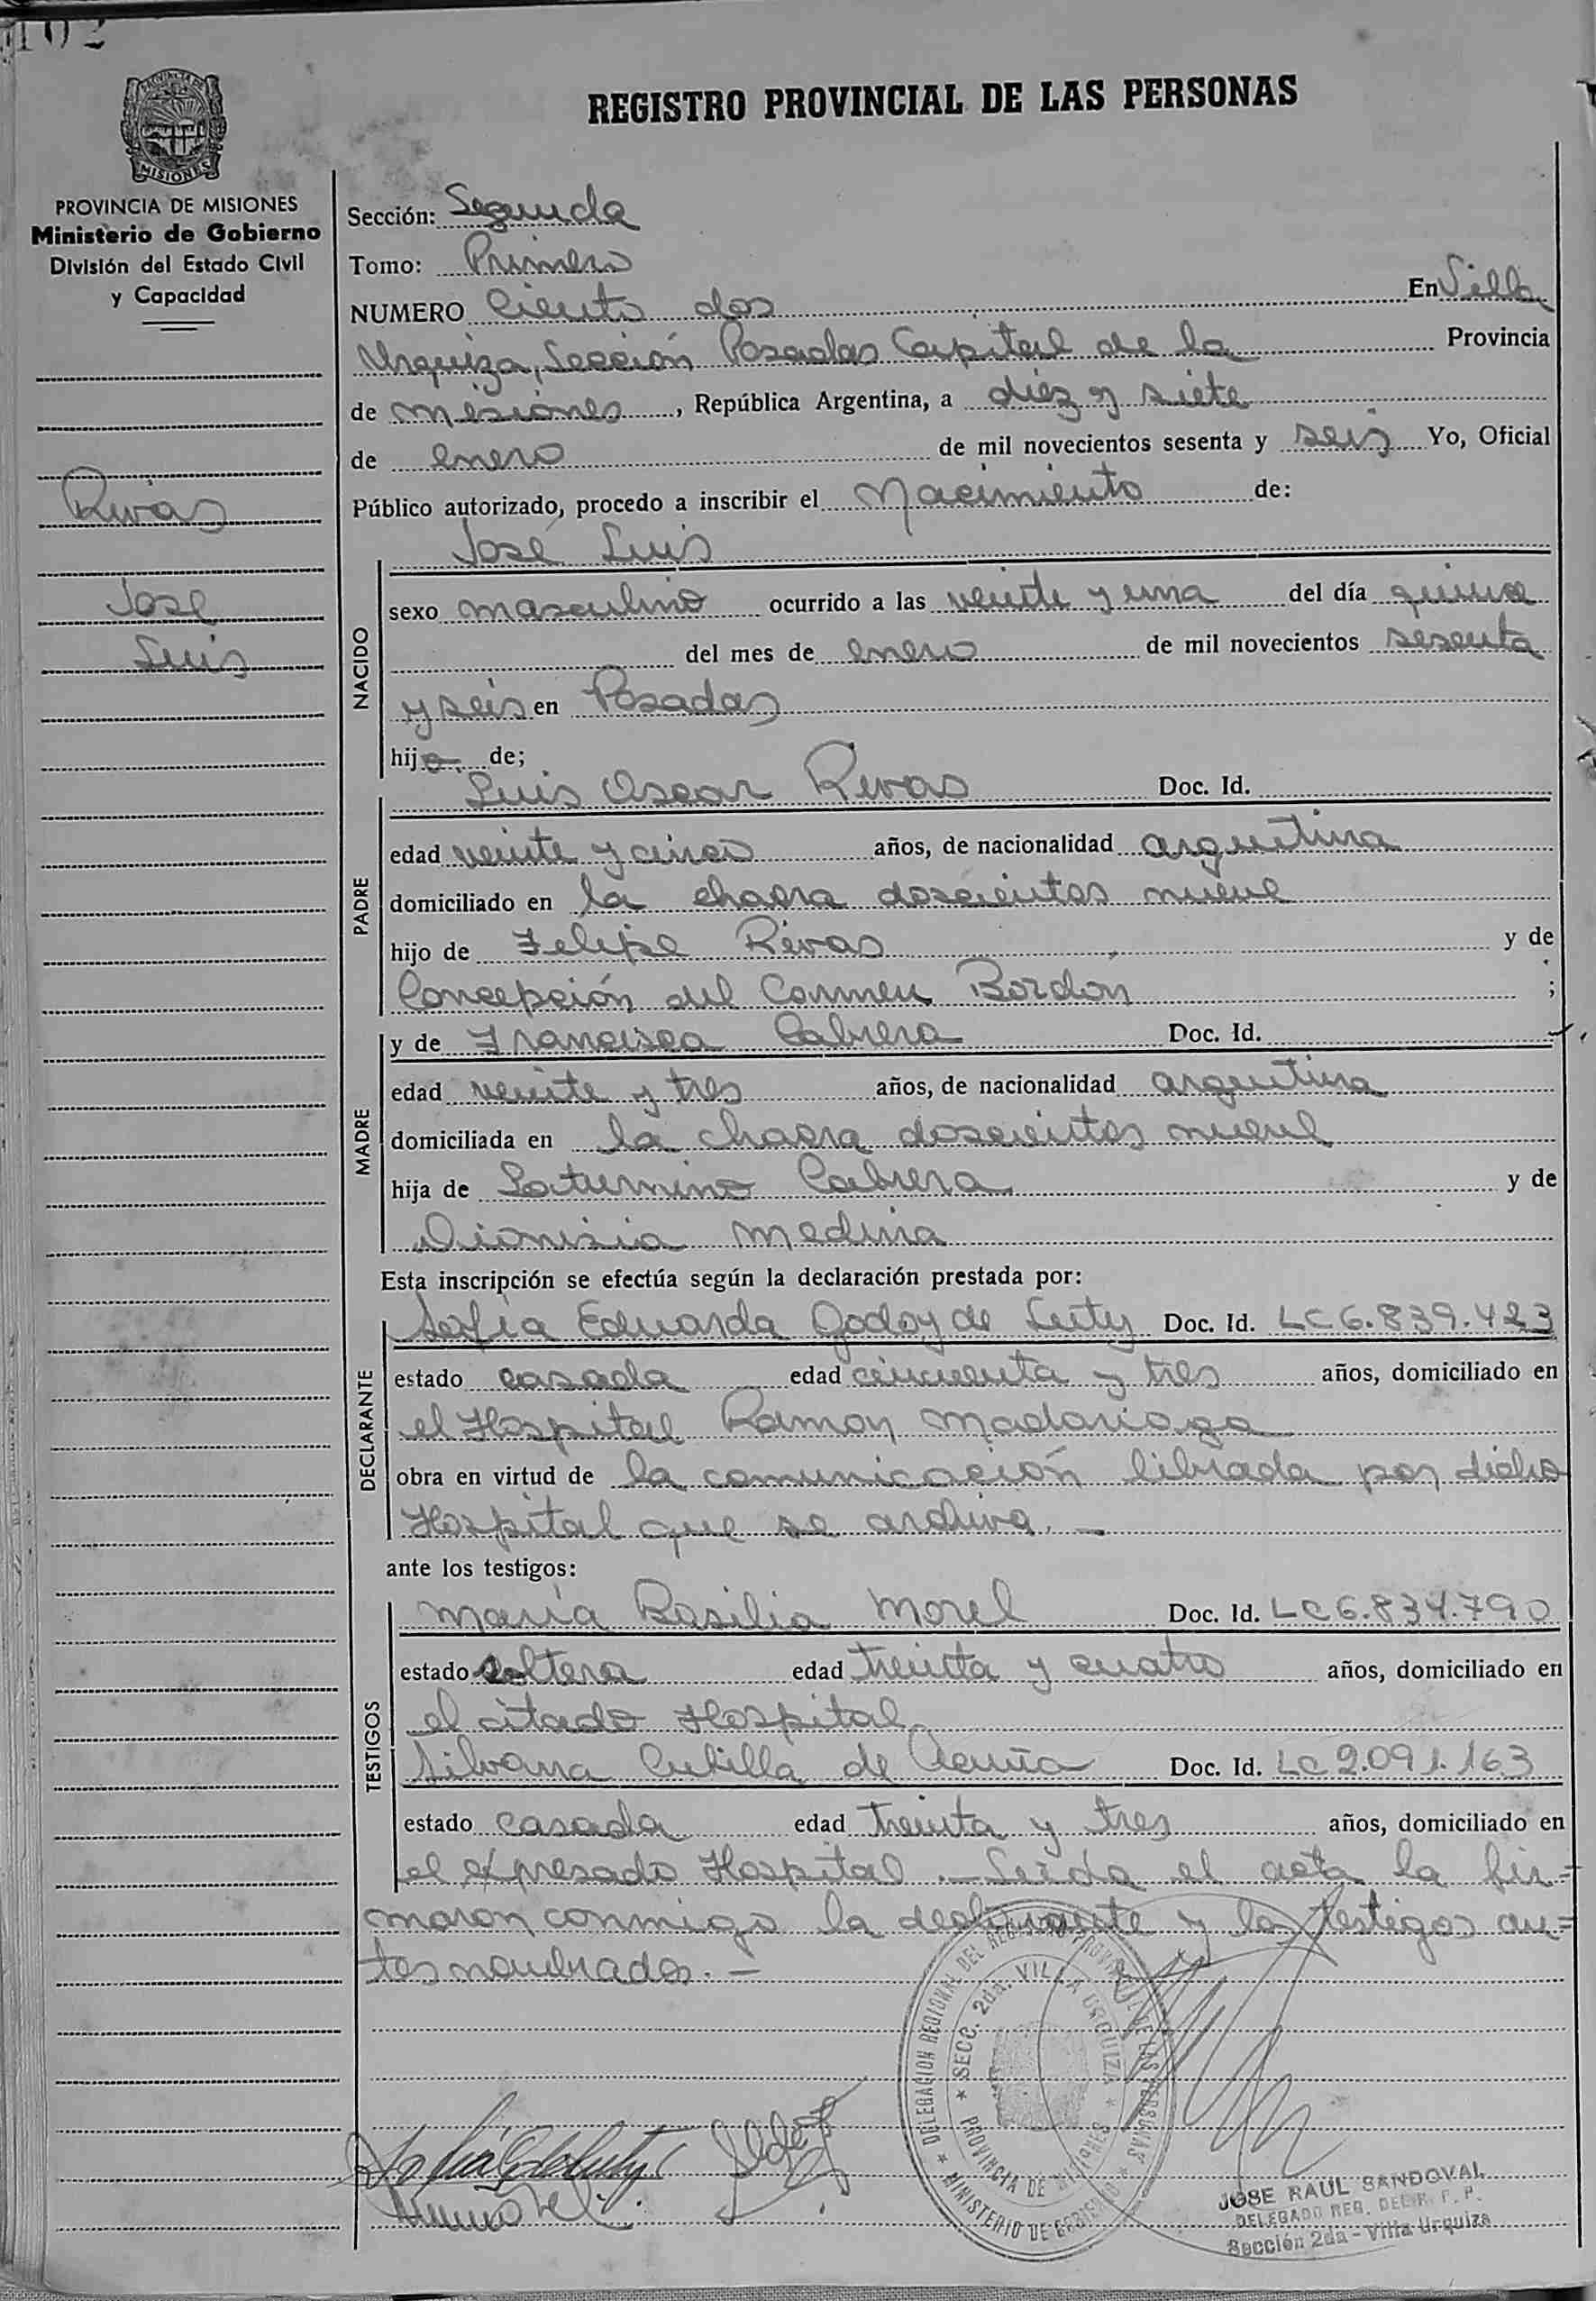 102
PROVINCIA DE MISIONES
MISIONES
REGISTRO PROVINCIAL DE LAS PERSONAS
PROVINCIA DE MISIONES
Ministerio de Gobierno
División del Estado Civil
y Capacidad
Rivas
José
Luis
Sección: Segunda
Tomo: Primero
NUMERO Ciento dos En Villa
Urquiza, Sección Posadas Capital de la Provincia
de Misiones, República Argentina, a diez y siete
de enero de mil novecientos sesenta y seis Yo, Oficial
Público autorizado, procedo a inscribir el Nacimiento de:
José Luis
NACIDO
sexo masculino ocurrido a las veinte y una del día quince
del mes de enero de mil novecientos sesenta
y seis en Posadas
hijo de;
Luis Oscar Rivas Doc. Id.
PADRE
edad veinte y cinco años, de nacionalidad argentina
domiciliado en la chacra doscientos nueve
hijo de Felipe Rivas y de
Concepción del Carmen Bordón ;
MADRE
y de Francisca Cabrera Doc. Id.
edad veinte y tres años, de nacionalidad argentina
domiciliada en la chacra doscientos nueve
hija de Saturnino Cabrera y de
Dionisia Medina
Esta inscripción se efectúa según la declaración prestada por:
DECLARANTE
Sofía Eduarda Godoy de Luty Doc. Id. LC 6.839.423
estado casada edad cincuenta y tres años, domiciliado en
el Hospital Ramon Madariaga
obra en virtud de la comunicación librada por dicho
Hospital que se archiva. —
ante los testigos:
TESTIGOS
María Basilia Morel Doc. Id. LC 6.834.790
estado soltera edad treinta y cuatro años, domiciliado en
el citado Hospital
Silvana Cubilla de Acuña Doc. Id. LC 2.091.163
estado casada edad treinta y tres años, domiciliado en
el expresado Hospital. — Leída el acta la fir=
maron conmigo la declarante y los testigos an=
tes nombrados. —
DELEGACION REGIONAL DEL REGISTRO PROVINCIAL DE LAS PERSONAS
SECC. 2da. VILLA URQUIZA
PROVINCIA DE MISIONES
MINISTERIO DE GOBIERNO
JOSE RAUL SANDOVAL
DELEGADO REG. DEL R. P. P.
Sección 2da - Villa Urquiza